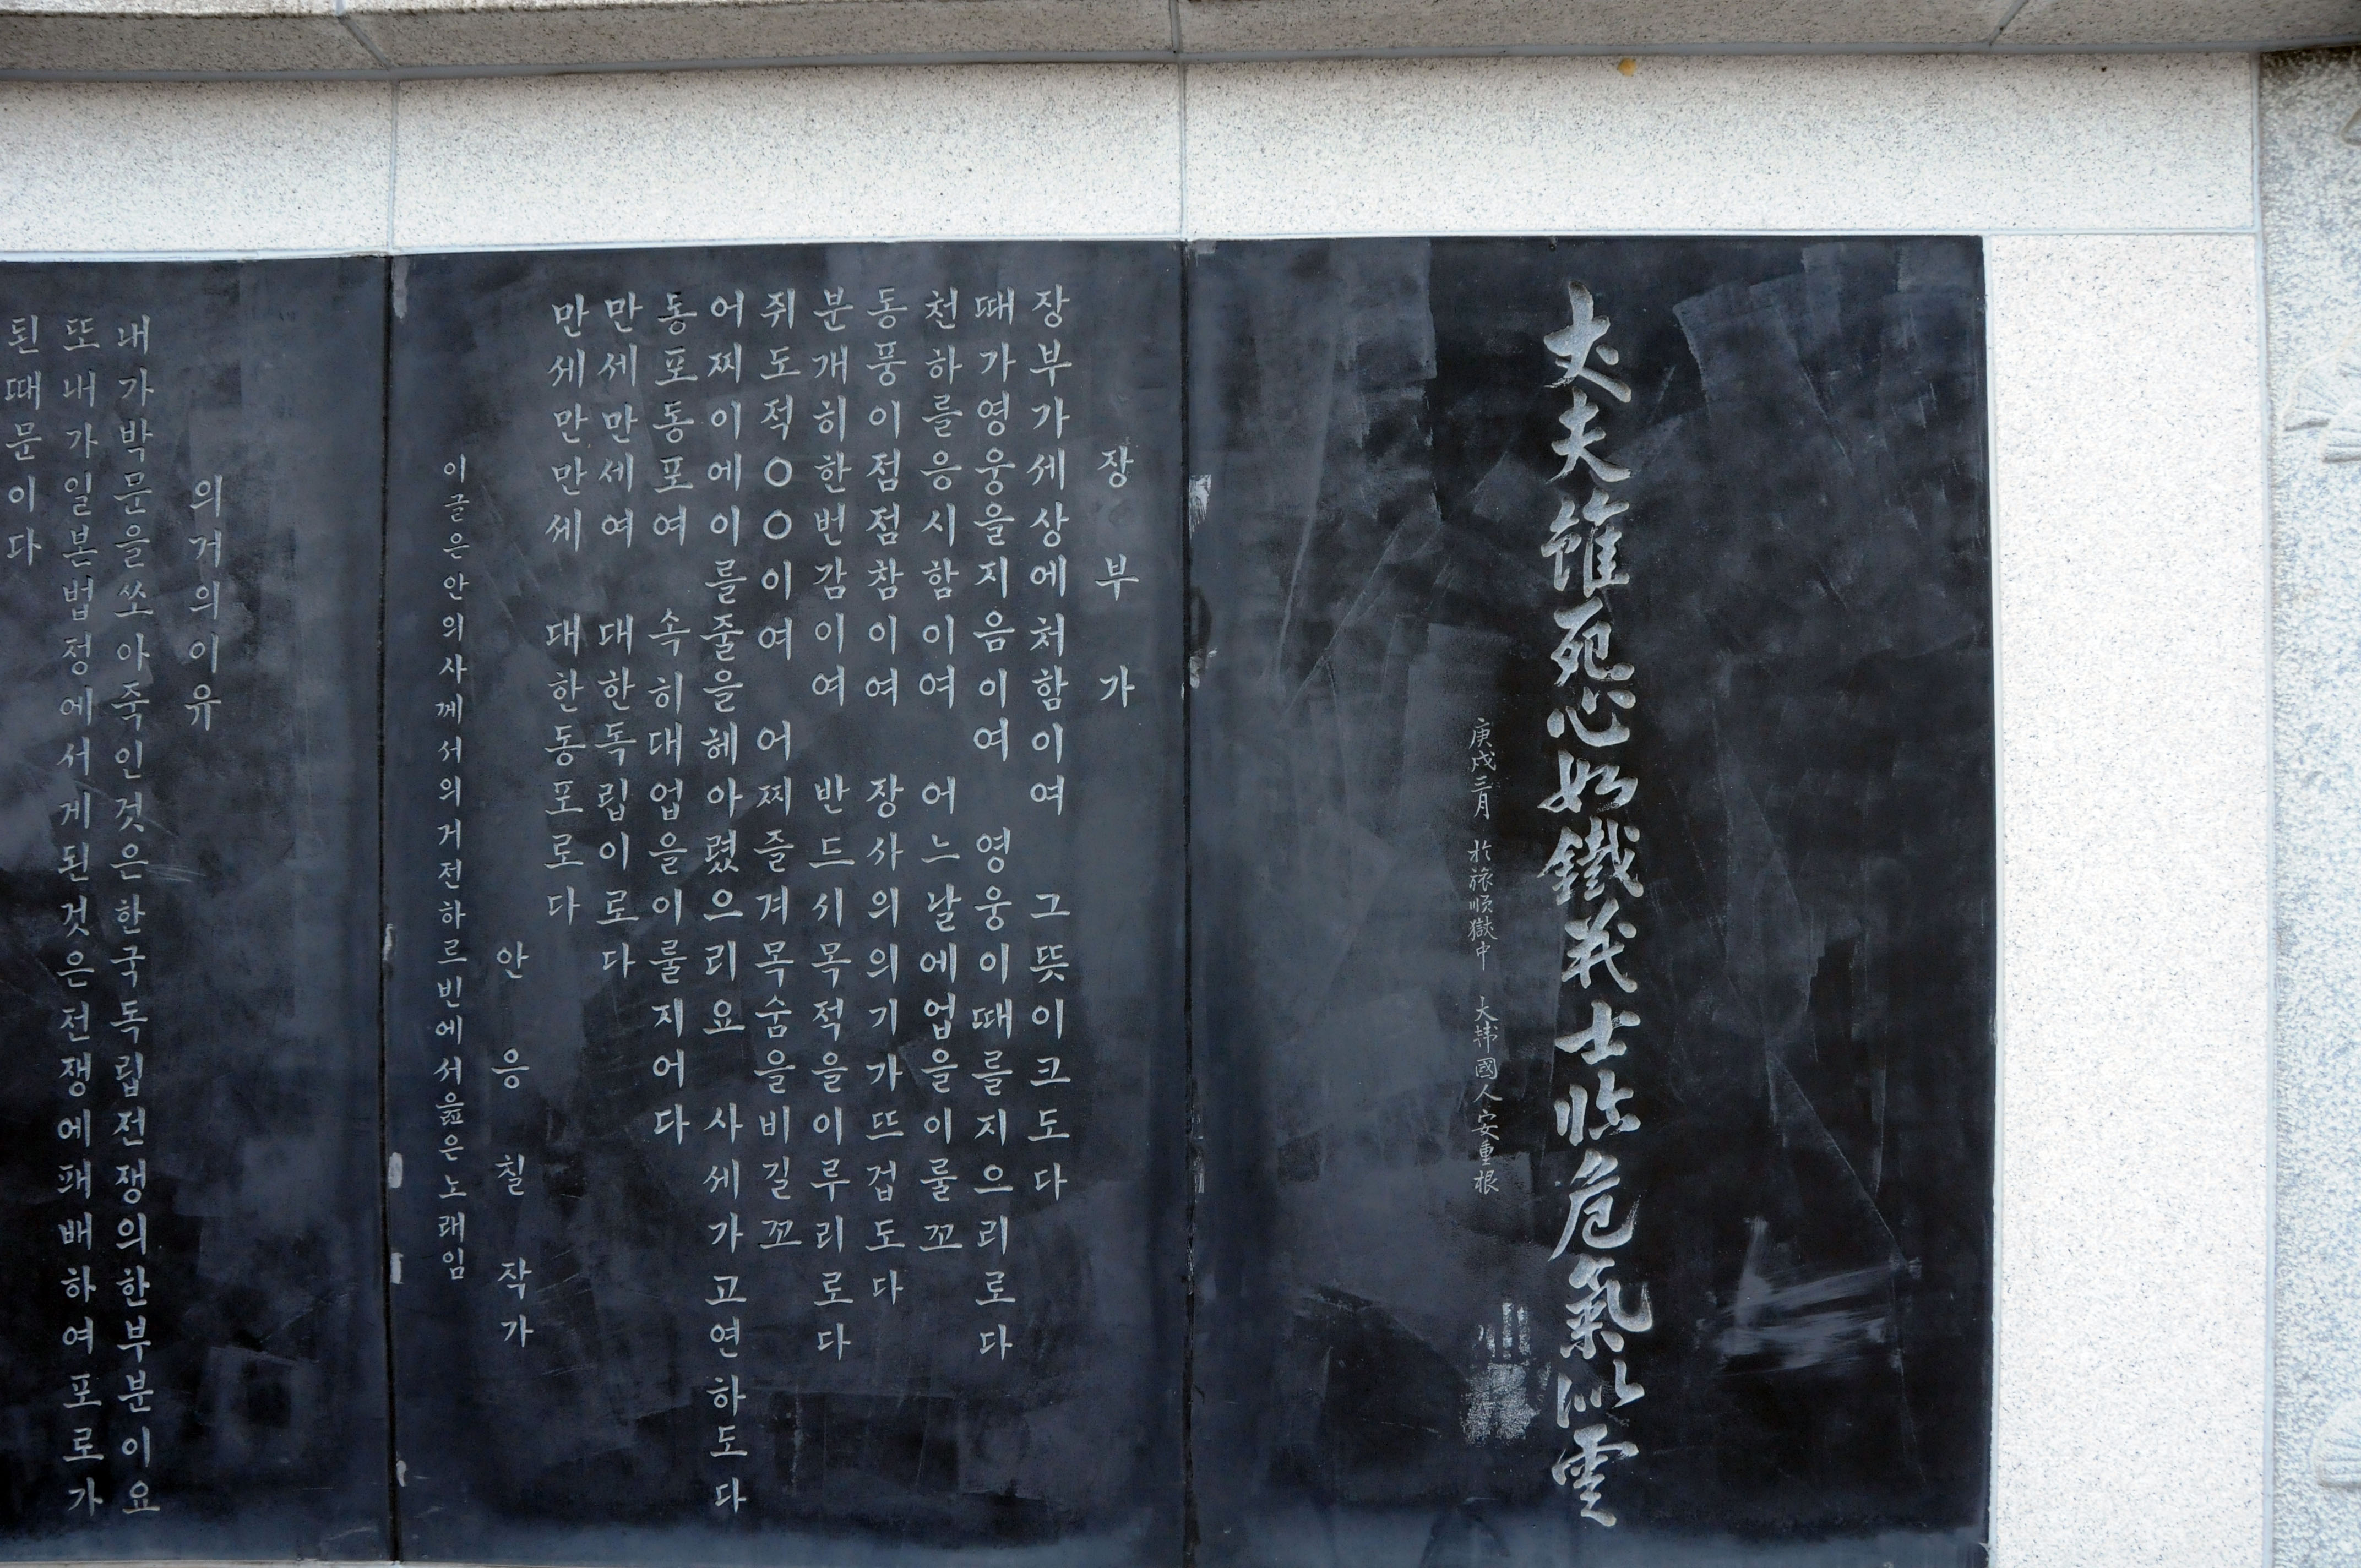 丈夫雖死心如鐵義士臨危氣似雲
庚戌三月 於旅順獄中 大韓國人安重根
장부가
장부가세상에처함이여 그뜻이크도다
때가영웅을지음이여 영웅이때를지으리로다
천하를응시함이여 어느날에업을이룰꼬
동풍이점점참이여 장사의의기가뜨겁도다
분개히한번감이여 반드시목적을이루리로다
쥐도적○○이여 어찌즐겨목숨을비길꼬
어찌이에이를줄을헤아렸으리요 사세가고연하도다
동포동포여 속히대업을이룰지어다
만세만세여 대한독립이로다
만세만만세 대한동포로다
안응칠작가
이글은안의사께서의거전하르빈에서읊은노래임
의거의이유
내가박문을쏘아죽인것은한국독립전쟁의한부분이요
또내가일본법정에서게된것은전쟁에패배하여포로가
된때문이다